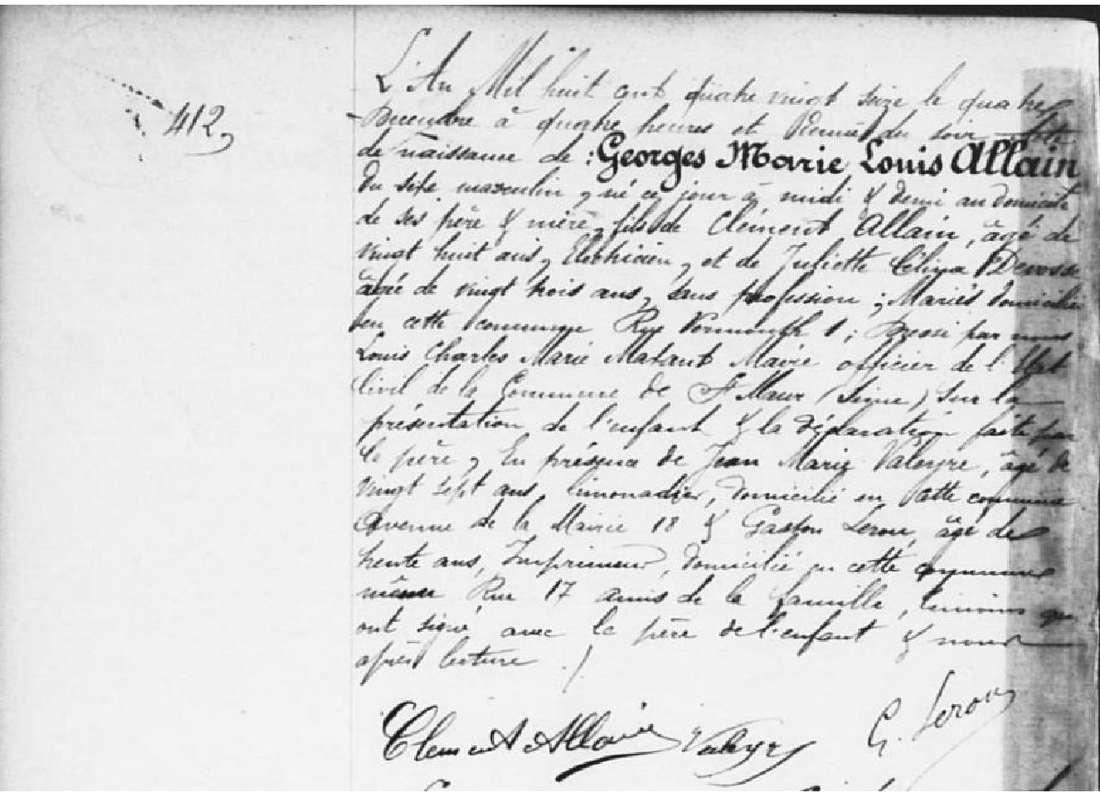 412,
L'An Mil huit cent quatre vingt seize le quatre
Décembre à quatre heures et demie du soir Acte
de naissance de : Georges Marie Louis Allain
du sexe masculin, né ce jour à midi & demi au domicile
de ses père & mère, fils de Clément Allain, âgé de
vingt huit ans, Electricien, et de Juliette Célina Devosse
âgée de vingt trois ans, sans profession ; Mariés domiciliés
en cette commune Rue 1 ; Dressé par nous
Louis Charles Marie Maire officier de l'Etat
Civil de la Commune de St Maur (Seine) Sur la
présentation de l'enfant & la déclaration faite par
le père, En présence de Jean Marie Valeyre, âgé de
vingt sept ans, limonadier, domicilié en cette commune
Avenue de la Mairie 18 & Gaston Leroux, âgé de
trente ans, Imprimeur, domicilié en cette commune
même Rue 17 amis de la famille, témoins qui
ont signé avec le père de l'enfant & nous
après lecture ./
Clement Allain Valeyre G. Leroux